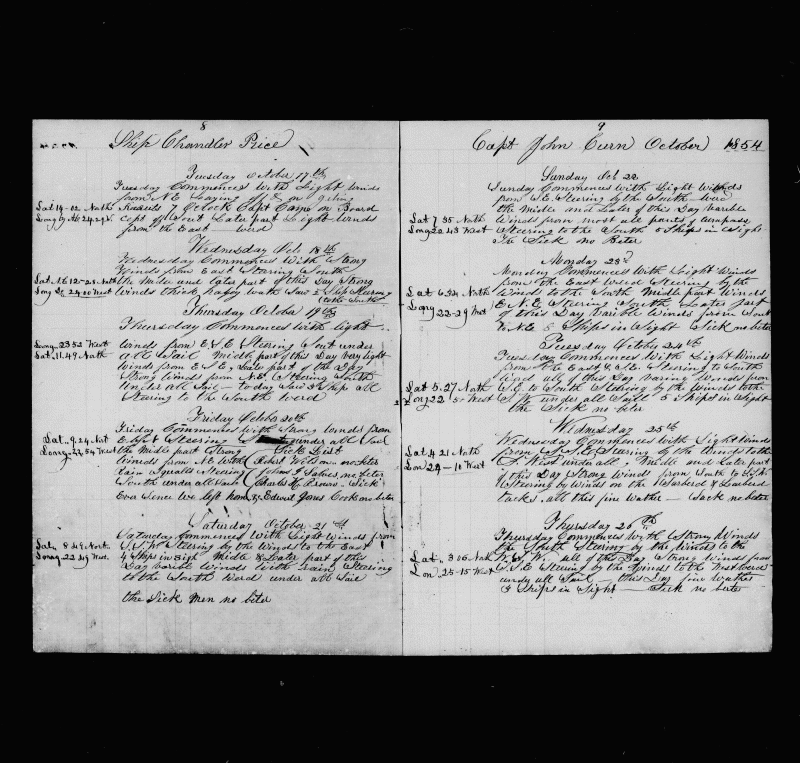 8
Ship Chandler Price
Tuesday October 17th
Tuesday Commences With Light Winds
from N.E. Laying
Lat 14-02 North
Long by Ab 24.29
7 oClock Capt Came on Board
Later part Light Winds
from the East werd
Wednesday Oct 18th
Wednesday Commences With Strong
Winds from East Stearing South
Lat N 12-28 North
Long 24.00 West
the Midle and Later part of this Day Strong
Winds thick hazey wath Saw 2 Ship Stearing
to the South
Thursday October 19th
Thursday Commences with light
Loong 23 52 West
Lat 11.49 North
winds from E.S.E Stearing Sout under
all Sail Midle part of this Day very light
Winds from E S E, Later part of the Day
Strong Winds from N.E. Stearing South
Under all Sail today Saw 3 Ship all
Stearing to the South werd
Friday October 20th
Friday Commences with Strong Winds from
Lat 9.24 Not
Loong 22,54 West
East Stearing under all Sail
the Midle part Strong
Winds from N.E With
Rain Squalls Stearing
South under all Sail
Sick List
Robert Wilson no beter
James no beter
Charles H. Sick
Eva Sence We left hom & Edwird Jones Cook no beter
Saturday October 21st
Saturday Commences With Light Winds from
Lat 8 49 North
Loong 22 29 West
Stearing by the Winds to the East
4 Ships in Sight Midle & Later part of this
Day varible Winds With rain Stearing
to the South Werd under all Sail
the Sick Men no beter
9
Capt John Curn October 1854
Sunday Oct 22
Sunday Commences with Light Winds
from S.E. Stearing by the South werd
the Midle and Later of this Day Varible
Lat 7 35 North
Long 22 43 West
Winds from most all parts of Compass
Stearing to the South 5 Ships in Sight
The Sick no Beter
Monday 23d
Monday Commences With Light Winds
from the East werd Stearing by the
Lat 6.34 North
Long 22-29 West
Winds to the South Midle part Winds
E.N.E Stearing South Later part
of this Day Varible Winds from Sout
to N.E 5 Ships in Sight Sick no beter
Tuesday October 24th
Tuesday Commences With Light Winds
from the East & S.E. Stearing to South
Werd all of this Day varing Winds from
Lat 5.27 North
Long 22 5 West
S.E to South Stearing by the Winds to the
S.W. under all Sail 5 Ships in Sight
the Sick no beter
Wednesday 25th
Wednesday Commences with Light Winds
from S.S.E Stearing by the Winds to the
Lat 4 21 North
Lon 24-10 West
S. West under all, Midle and Later part
of this Day Strong Winds from South to East
Stearing by Winds on the Starberd & Larberd
tacks, all this fine Wather - Sick no beter
Thursday 26th
Thursday Commences with Strong Winds
the South Stearing by the Winds to the
Lat 3 06 North
Lon 25-15 West
S.W. all of this Day Strong Winds from
S.S.E Stearing by the Winds to the West werd
undy all Sail - this Day fine wather
3 Ships in Sight - Sick no beter